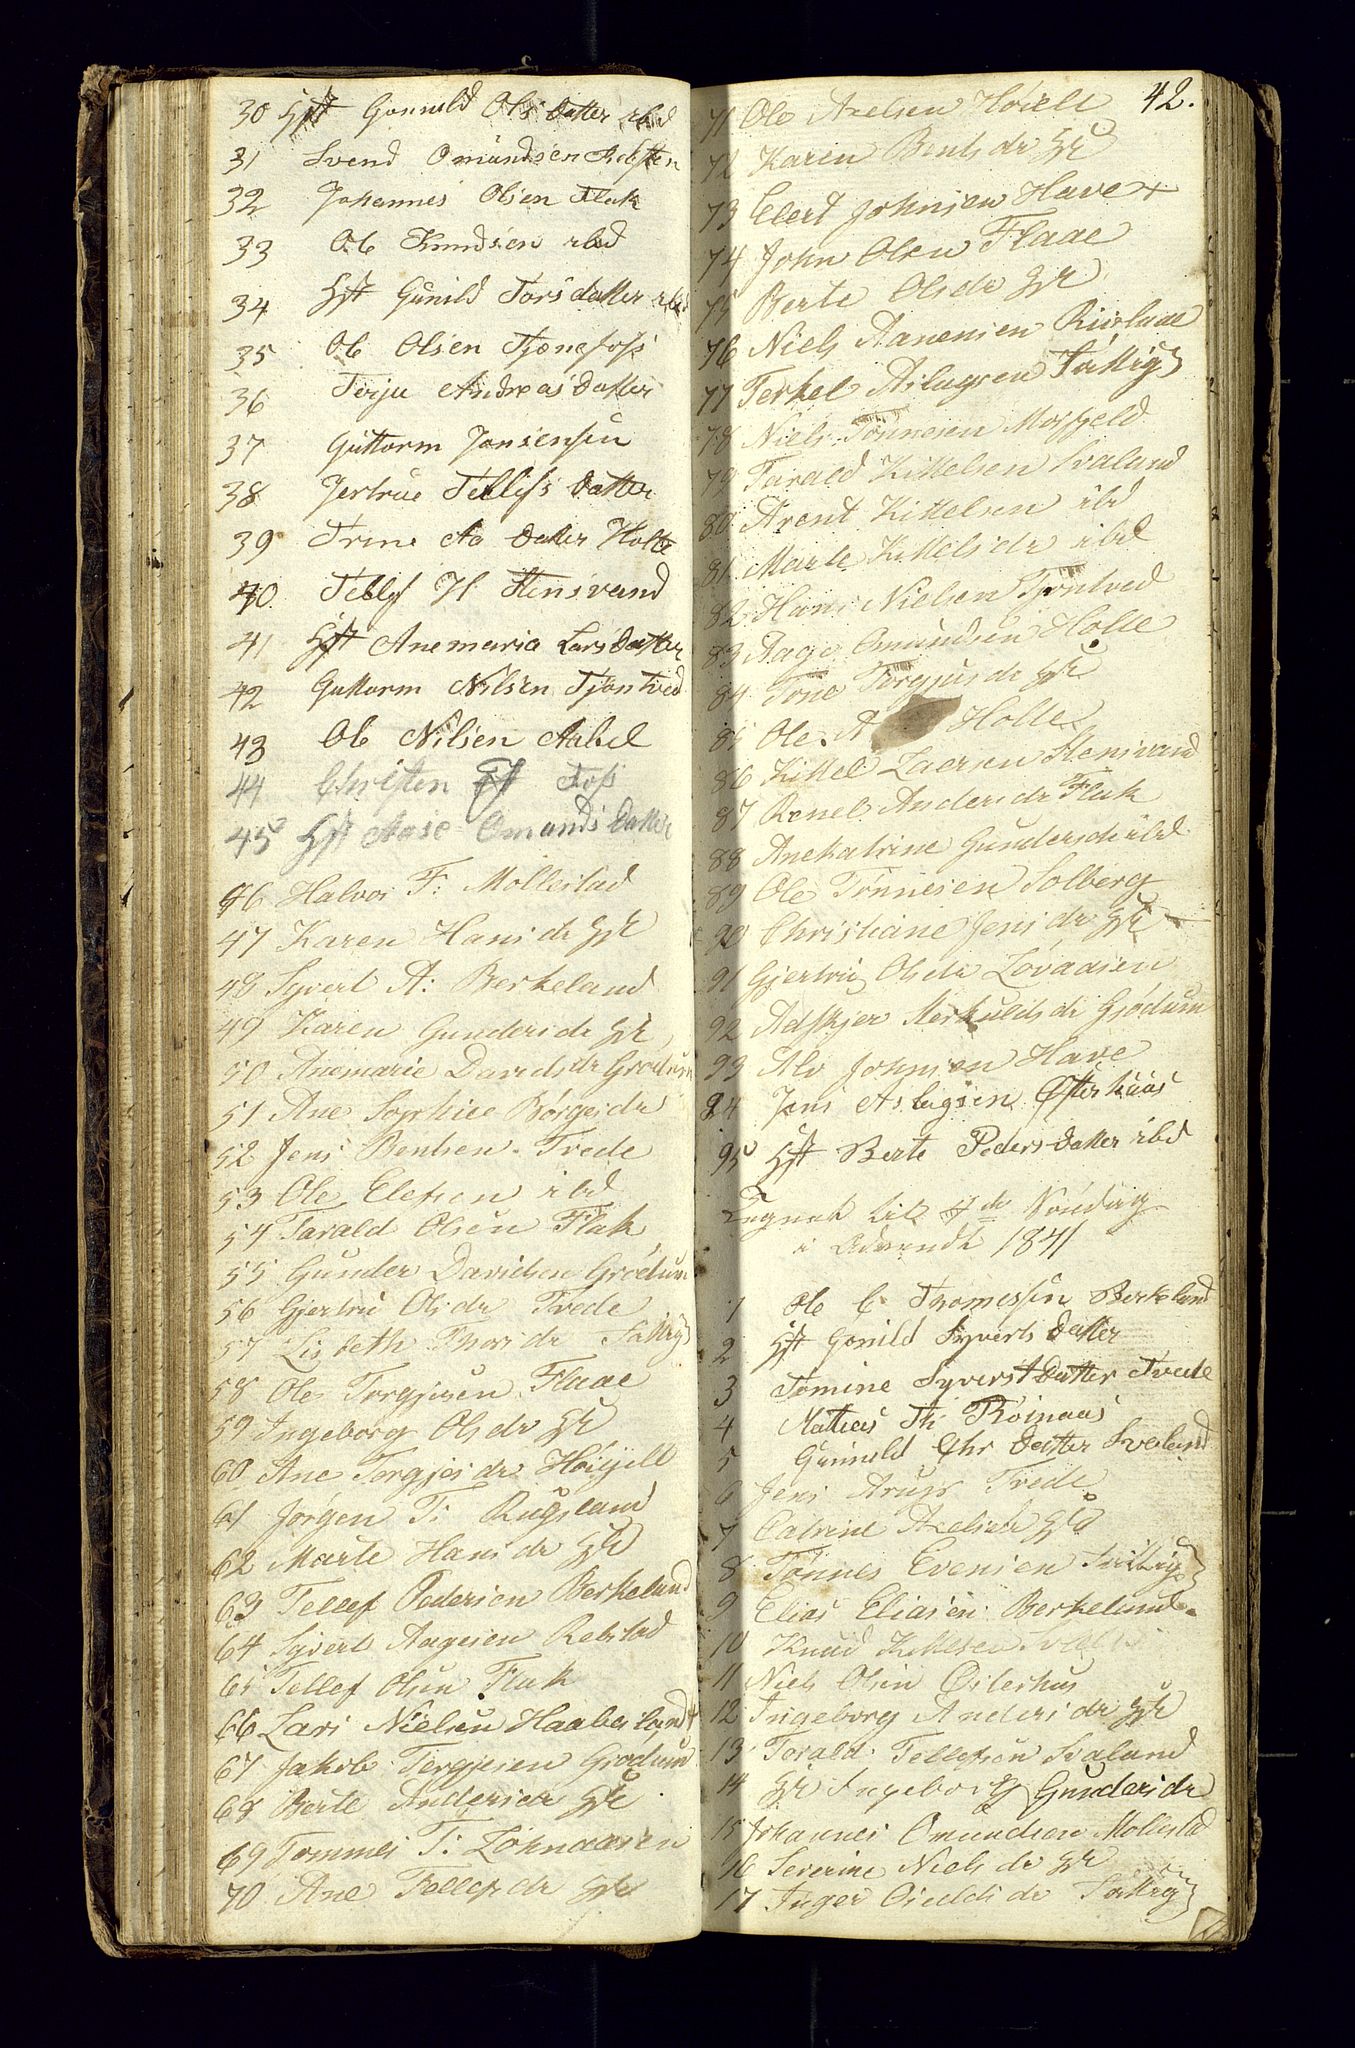 30 Hst Gonnild Ols datter ibid
31 Svend Omundsen
32 Johannes Olsen Flak
33 Ole Knudsen ibid
34 Hst Gunild Torsdatter ibid
35 Ole Olsen Tjønefoss
36 Terju Andreasdatter
37 Guttorm Jonsensen
38 Jertrue Tellifs datter
39 Trine Aa datter Holte
40 Tellef H Stensvand
41 Hst Anemaria Lars datter
42 Guttorm Nilsen Tjøntved
43 Ole Nilsen Aabel
44 Christen Foss
45 Hst Aase Omunds datter
46 Halvor F: Mollestad
47 Karen Hansdr HK
48 Syvert A: Berkeland
49 Karen Gundersdr HK
50 Anemarie Davidsdr Grødum
51 Ane Sophie Børgesdr
52 Jens Bentsen Tvede
53 Ole Elefsen ibd
54 Tarald Olsen Flak
55 Gunder Davidsen Grødum
56 Gjertru Olsdr Tvede
57 Lisbeth Thorsdr
58 Ole Torgjusen Flaae
59 Ingeborg Olsdr HK
60 Ane Torgjesdr Høigilt
61 Jørgen T: Rugsland
62 Marte Hansdr HK
63 Tellef Pedersen Berkeland
64 Syvert Aagesen Rebstad
65 Tellef Olsen Flak
66 Lars Nielsen Haabesland
67 Jakob Tergjesen Grødum
68 Berte Andersdr HK
69 Tommes T:
70 Ane Tellefsdr HK
42.
71 Ole Axelsen Høielt
72 Karen Bentsdr HK
73 Elert Johnsen Have +
74 John Olsen Flaae
75 Berte Olsdr HK
76 Niels Aanensen Risslaae
77 Terkel Aslagsen
78 Niels Tønnesen Mosfjeld
79 Tarald Kittelsen Svaland
80 Arent Kittelsen ibd
81 Marte Kittelsdr ibd
82 Hans Nielsen Tjøntved
83 Aage Omundsen Holte
84 Tone Torgjusdr HK
85 Ole A Holte
86 Kittel Larsen Stensvand
87 Ronel Andersdr Flak
88 Anekatrine Gundersdr ibd
89 Ole Tønnesen Solberg
90 Christiane Jensdr HK
91 Gjertru Olsdr Løvaasen
92 Adskjer Gjødum
93 Alv Johnsen Have
94 Jens Aslagsen Østerhuus
95 Hst Berte Pedersdatter ibd
Tegnet til 4de Søndag
i Advendt 1841
1 Ole C Thomessen Berkeland
2 Hst Gonild Syverts datter
3 Tomine Syverst datter Tvede
4 Mattias Th: Roinaas
5 Gunnild Chr datter Svaland
6 Jens Tvede
7 Catrine Axelsdr HK
8 Tønnes Evensen
9 Elias Eliasen Berkeland
10 Knud Kittelsen
11 Niels Olsen Østerhus
12 Ingeborg Andersdr HK
13 Torald Tellefsen Svaland
14 HK Ingeborg Gundersdr
15 Johannes Omundsen Mollestad
16 Severine Nielsdr HK
17 Inger